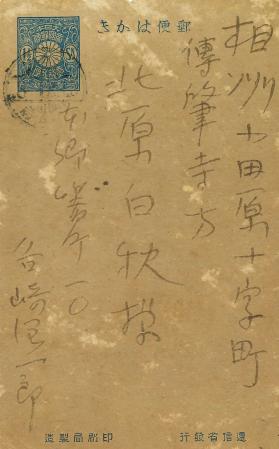 郵便はかき
相州小田原十字町
傳肇寺方
北原白秋様
本郷曙町一〇
谷崎潤一郎
逓信省發行
印刷局製造